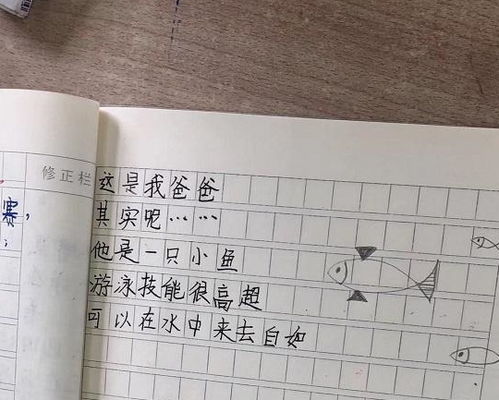 修正栏
赛，
这是我爸爸
其实呢……
他是一只小鱼
游泳技能很高超
可以在水中来去自如